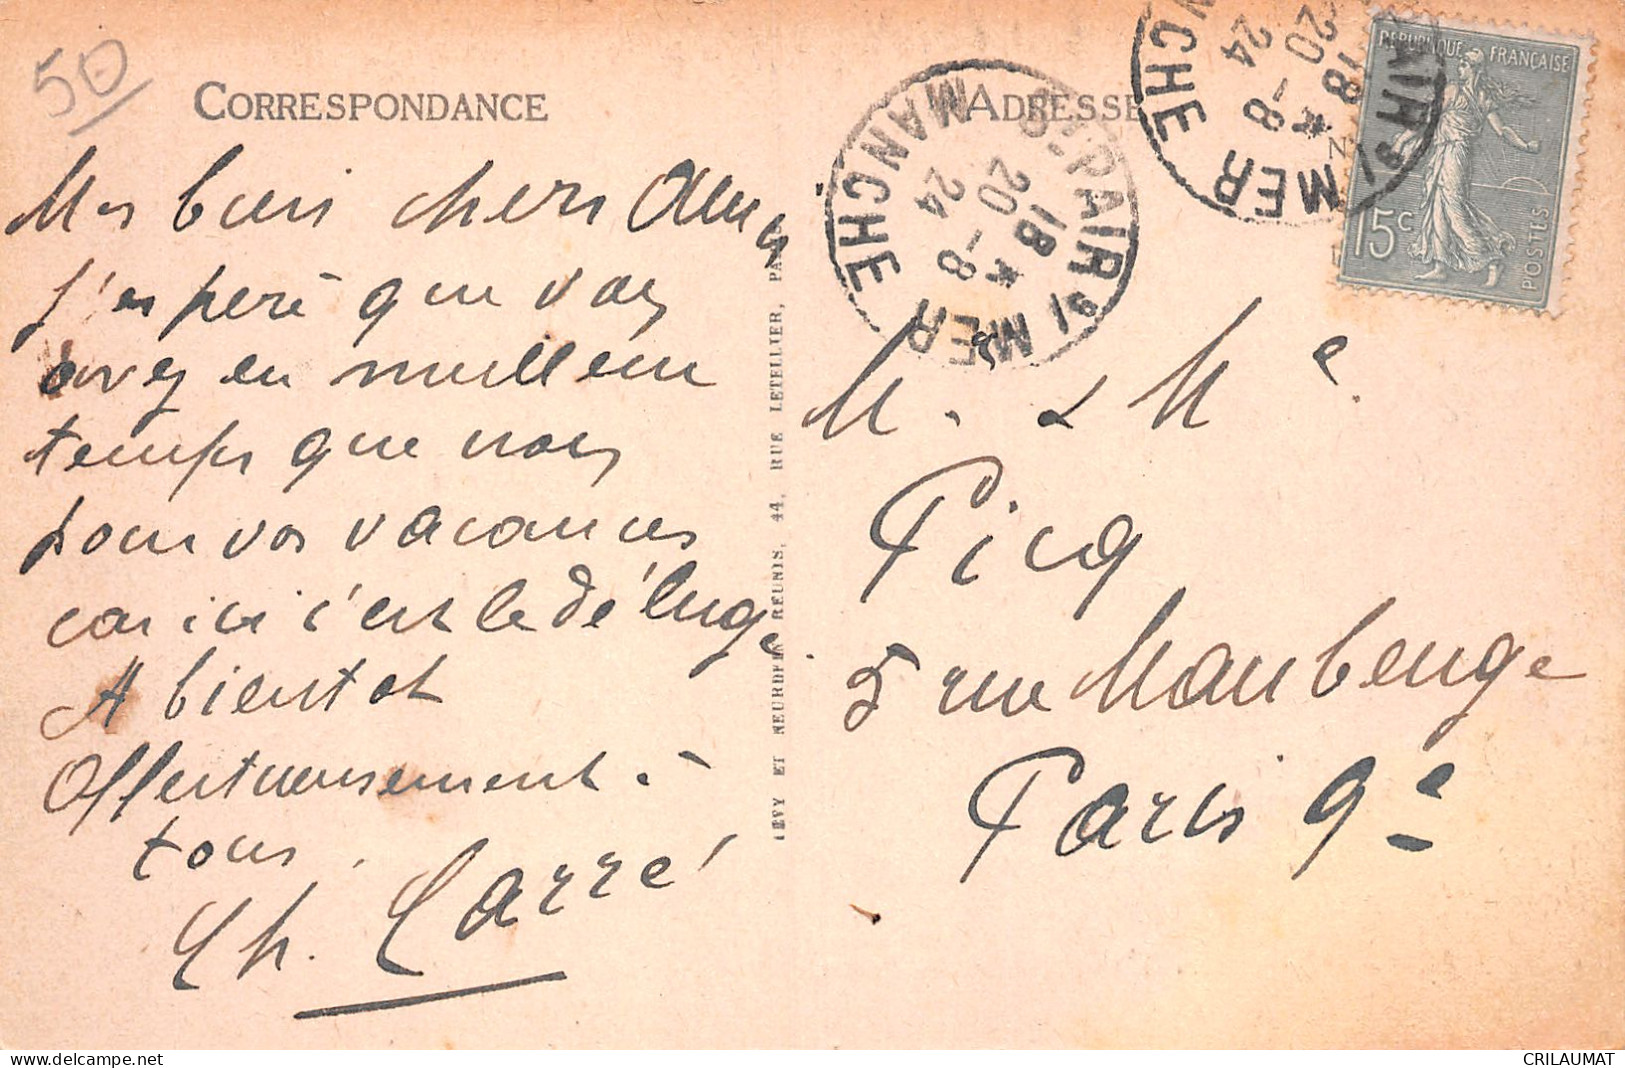 50
CORRESPONDANCE
Mes bien chers Amis
J'espère que vous
avez eu meilleur
temps que nous
pour vos vacances
car ici c'est le déluge.
A bientot
Affectueusement à
tous.
Ch. Carré
LEVY ET NEURDEIN RÉUNIS, 44, RUE LETELLIER, PA
ADRESSE
ST PAIR S/ MER
18 *
20 -8
24
MANCHE
ST PAIR S/ MER
18 *
20 -8
24
MANCHE
RÉPUBLIQUE FRANÇAISE
15c
POSTES
M. & Me
Picq
5 rue Maubeuge
Paris 9e
delcampe.net
CRILAUMAT